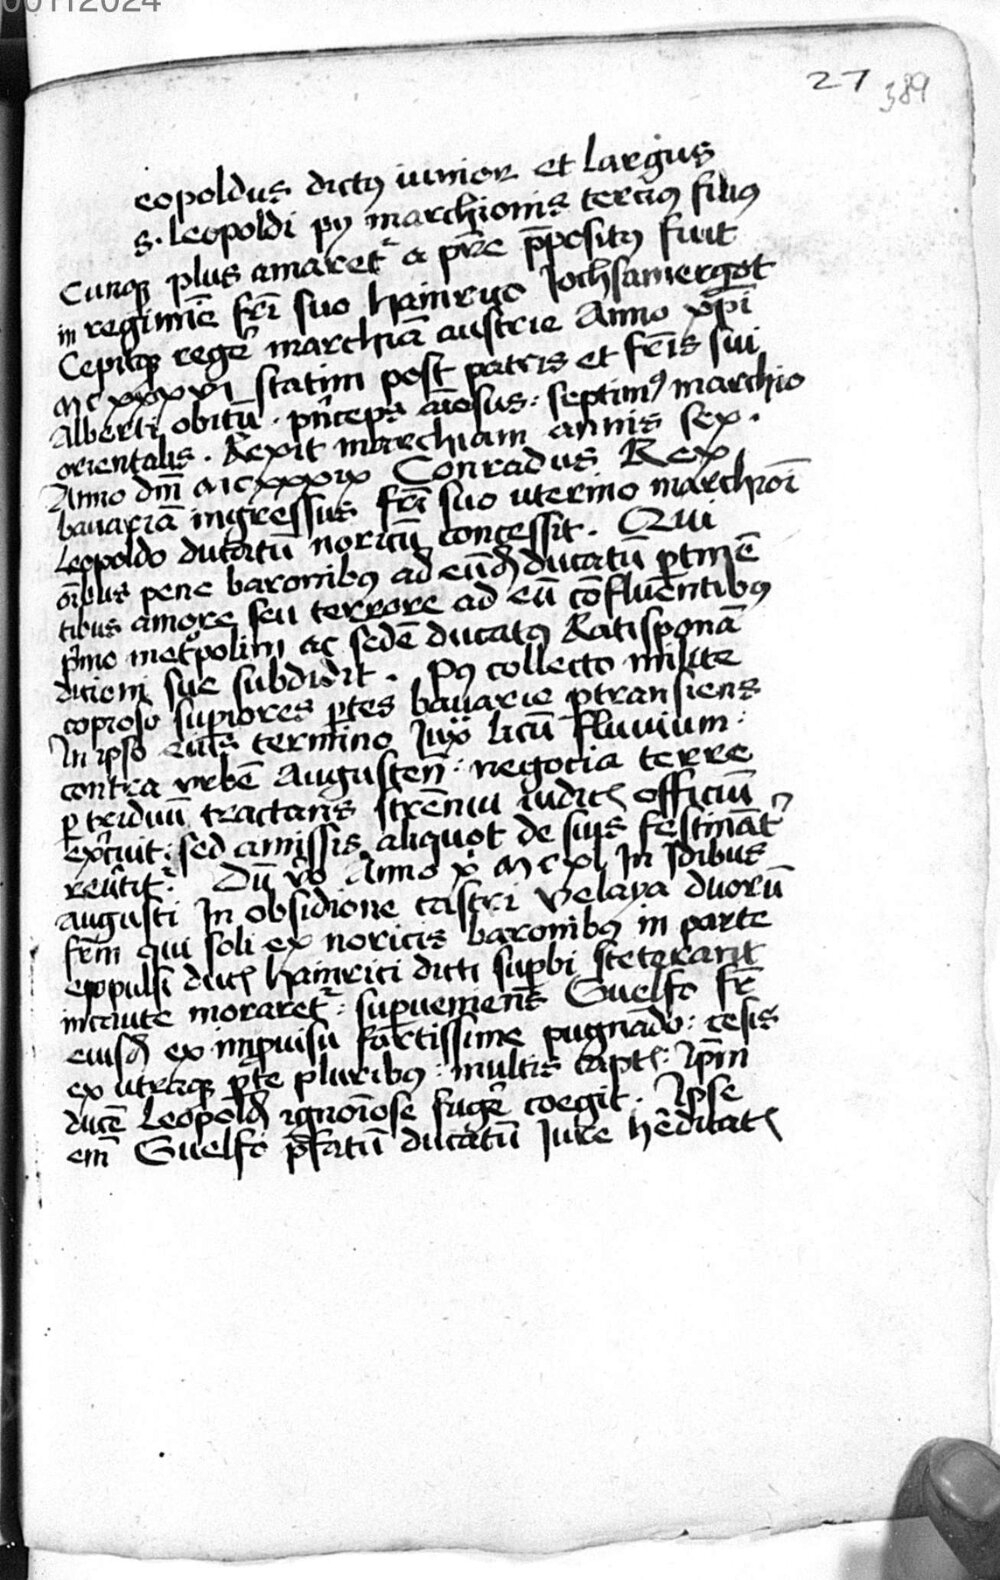 00112024
27 389
eopoldus dictꝰ iunior et largus
S. Leopoldi pij marchionis terciꝰ filiꝰ
Cunqꝫ plus amaret᷑ a pr̄e p̄positꝰ fuit
in regimīe fr̄i suo hainrico Jochsamergot
Cepitqꝫ reger̄ marchiā austrie Anno xp̄i
Mcxxxvi statim post patris et fr̄is sui
Alberti obitū. pn̄ceps aīosus: septimꝰ marchio
orientalis. Rexit marchiam annis sex.
Anno dm̄ Mcxxxix Conradus Rex
bauariā ingressus fr̄i suo uterino marchioī
Leopoldo ducatū noricū concessit. Qui
oībus pene baronibꝰ ad eūdꝫ ducatū ꝑtinē
tibus amore seu terrore ad eū cōfluentibꝰ
p̄mo met̄polim ac sedē ducatꝰ Ratisponā
dicioni sue subdidit. Pꝰ collecto milite
copioso suꝑiores ꝑtes bauarie ꝑtransiens
In ipso eiꝰ termino Juxͣ licū fluuium:
contra vrbē Augusten̄: negocia terre
ꝑ triduū tractans strēnui iudicꝭ officiū
exͦcuit: sed amissis aliquot de suis festinātˀ
reu̓tit᷑. Dū v̊o Anno x̊ Mcxl In Idibus
augusti In obsidione castri velaya duorū
fr̄m qui soli ex noricis baronibꝰ in parte
expulsi ducꝭ hainrici dicti suꝑbi steterant
incaute moraret᷑: suꝑueniens Guelfo fr̄
eiusdꝫ ex imꝓuisu fortissime pugnādo: cesis
ex utraqꝫ ꝑte pluribꝰ: multis captꝭ: ip̄m
ducē Leopoldꝫ ignoīose fuger̄ coegit. Ipse
em̄ Guelfo p̄fatū ducatū Jure hēditatꝭ